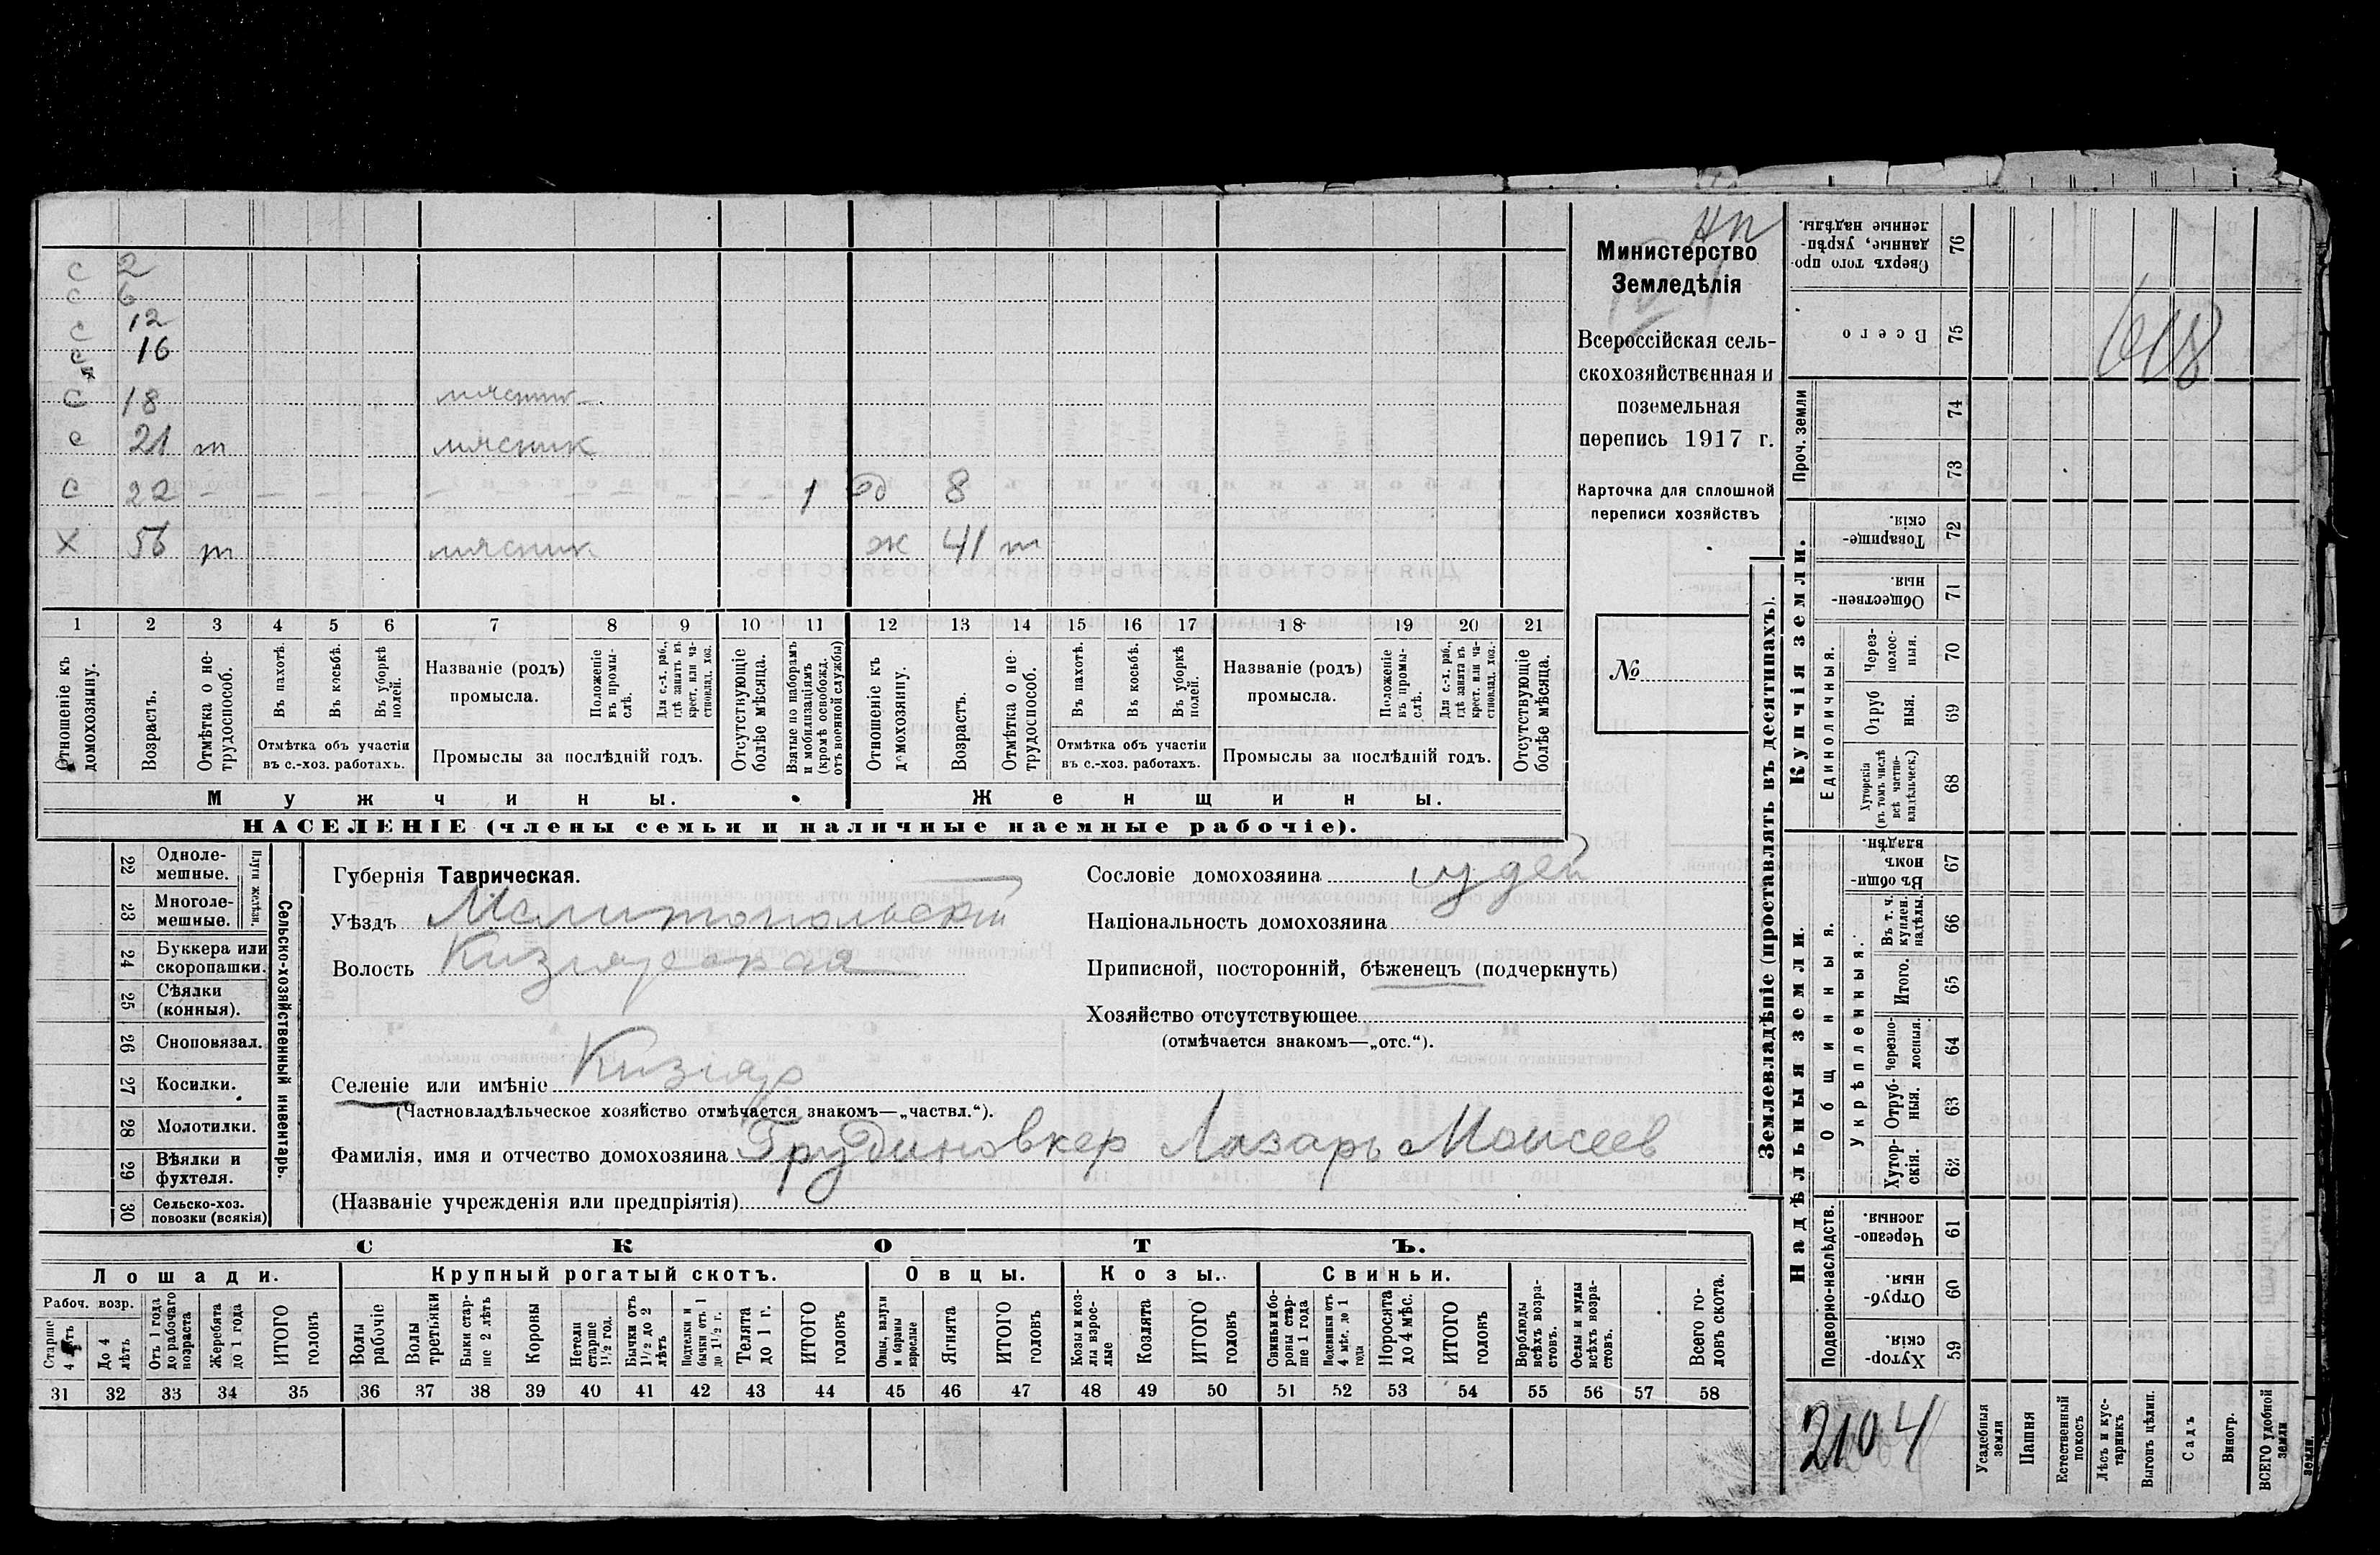 НП
Министерство
Земледѣлія
Всероссійская сель-
скохозяйственная и
поземельная
перепись 1917 г.
Карточка для сплошной
переписи хозяйствъ
№
с 2
с 6
с 12
с 16
с 18 мясник
с 21 т мясник
с 22 — 1 д 8
х 56 т мясник ж 41 т
1 2 3 4 5 6 7 8 9 10 11 12 13 14 15 16 17 18 19 20 21
Отношеніе къ домохозяину.
Возрастъ.
Отмѣтка о не-трудоспособ.
Въ пахотѣ.
Въ косьбѣ.
Въ уборкѣ полей.
Отмѣтка объ участіи въ с.-хоз. работахъ.
Названіе (родъ) промысла.
Положеніе въ промы-слѣ.
Для с.-х. раб., гдѣ занятъ въ крест. или ча-стновлад. хоз.
Промыслы за послѣдній годъ.
Отсутствующіе болѣе мѣсяца.
Взятые по наборамъ и мобилизаціямъ (кромѣ освобожд. отъ военной службы)
Отношеніе къ домохозяину.
Возрастъ.
Отмѣтка о не-трудоспособ.
Въ пахотѣ.
Въ косьбѣ.
Въ уборкѣ полей.
Отмѣтка объ участіи въ с.-хоз. работахъ.
Названіе (родъ) промысла.
Положеніе въ промы-слѣ.
Для с.-х. раб., гдѣ занята въ крест. или ча-стновлад. хоз.
Промыслы за послѣдній годъ.
Отсутствующіе болѣе мѣсяца.
Мужчины. Женщины.
НАСЕЛЕНІЕ (члены семьи и наличные наемные рабочіе).
Сельско-хозяйственный инвентарь.
Плуги желѣзн.
22 Одноле-мешные.
23 Многоле-мешные.
24 Буккера или скоропашки.
25 Сѣялки (конныя).
26 Сноповязал.
27 Косилки.
28 Молотилки.
29 Вѣялки и фухтеля.
30 Сельско-хоз. повозки (всякія)
Губернія Таврическая.
Уѣздъ Мелитопольскій
Волость Кизіярская
Селеніе или имѣніе Кизіяр
(Частновладѣльческое хозяйство отмѣчается знакомъ—„частвл.“).
Фамилія, имя и отчество домохозяина Грудиновкер Лазарь Моисеев
(Названіе учрежденія или предпріятія)
Сословіе домохозяина иудей
Національность домохозяина
Приписной, посторонній, бѣженецъ (подчеркнуть)
Хозяйство отсутствующее
(отмѣчается знакомъ—„отс.“).
СКОТЪ.
Лошади. Крупный рогатый скотъ. Овцы. Козы. Свиньи.
Рабоч. возр.
Старше 4 лѣтъ
До 4 лѣтъ
Отъ 1 года до рабочаго возраста
Жеребята до 1 года
ИТОГО головъ
Волы рабочіе
Волы третьяки
Быки стар-ше 2 лѣтъ
Коровы
Нетели старше 1½ год.
Бычки отъ 1½ до 2 лѣтъ
Подтелки и бычки отъ 1 до 1½ г.
Телята до 1 г.
ИТОГО головъ
Овцы, валухи и бараны взрослые
Ягнята
ИТОГО головъ
Козы и коз-лы взрос-лые
Козлята
ИТОГО головъ
Свиньи и бо-ровы стар-ше 1 года
Подсвинки отъ 4 мѣс. до 1 года
Поросята до 4 мѣс.
ИТОГО головъ
Верблюды всѣхъ возра-стовъ.
Ослы и мулы всѣхъ возра-стовъ.
Всего го-ловъ скота.
31 32 33 34 35 36 37 38 39 40 41 42 43 44 45 46 47 48 49 50 51 52 53 54 55 56 57 58
Землевладѣніе (проставлять въ десятинахъ).
Купчія земли.
Надѣльныя земли.
76 Сверхъ того про-данные, укрѣп-ленные надѣлы.
75 Всего
Проч. земли
74
73
72 Товарище-скія.
71 Обществен-ныя.
Единоличныя.
70 Через-полос-ныя.
69 Отруб ныя.
68 Хуторскія (въ томъ числѣ всѣ частно-владѣльческ.)
Общинныя.
67 Въ общи-номъ владѣн.
Укрѣпленныя.
66 Въ т. ч. куплен. надѣлы.
65 Итого.
64 Черезпо-лосныя.
63 Отруб-ныя.
62 Хутор-скія.
Подворно-наслѣдств.
61 Черезпо-лосныя.
60 Отруб-ныя.
59 Хутор-скія.
2104
Усадебныя земли
Пашня
Естественный покосъ
Лѣсъ и кус-тарникъ
Выгонъ цѣлин.
Садъ
Виногр.
ВСЕГО удобной земли
земли.